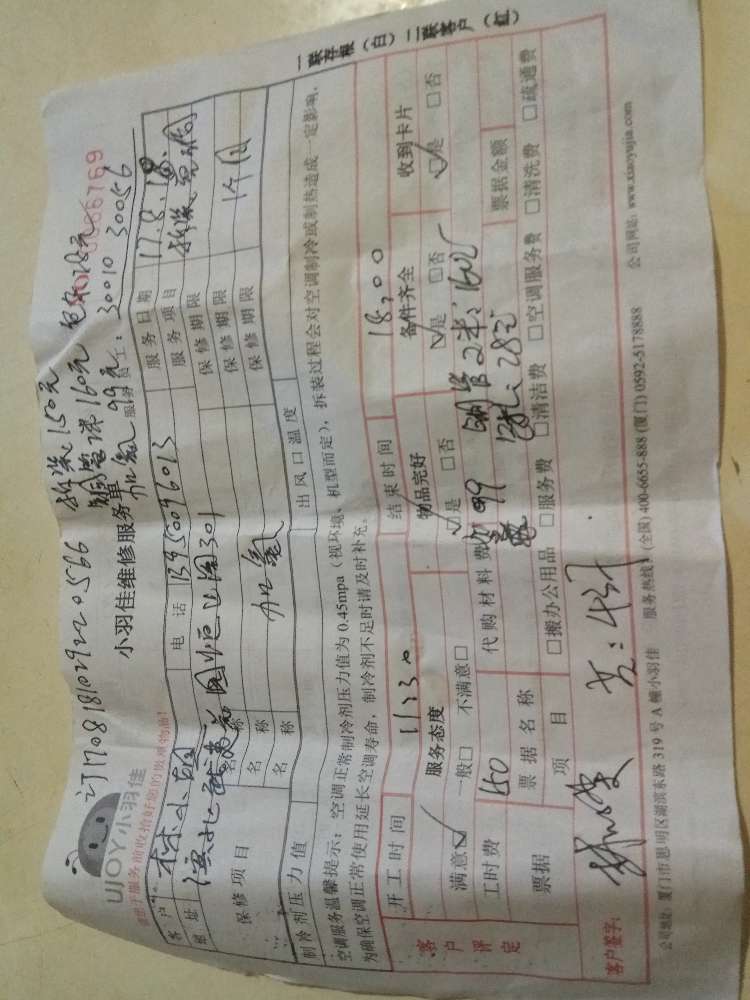 订170818102922 0566 拆装150元
铜管2米160元
加氟99元
UJOY小羽佳
小羽佳维修服务单
服务员工: 30010 30056
请您于服务前收拾好您的贵重物品!
客户 林小姐 电话 13950096013 服务日期 17.8.18
地址 301 服务项目 拆装空调
保修项目 名称 保修期限
名称 加氟 保修期限 1个月
名称 保修期限
制冷剂压力值 出风口温度
空调服务温馨提示:空调正常制冷剂压力值为0.45mpa(视环境、机型而定),拆装过程会对空调制冷或制热造成一定影响,
为确保空调正常使用延长空调寿命,制冷剂不足时请及时补充。
一联存根(白)二联客户(红)
客户评定
开工时间 结束时间 18,00
服务态度 物品完好 备件齐全 收到卡片
满意☑ 一般□ 不满意□ ☑是 □否 ☑是 □否 ☑是 □否
工时费 150 代购材料费 99 铜管2米:160元
28元
票据 票据名称 票据金额
项目 □搬办公用品 □服务费 □清洁费 □空调服务费 □清洗费 □疏通费
客户签字: 共:437
公司地址:厦门市思明区湖滨东路319号A幢小羽佳 服务热线:(全国)400-6655-888(厦门)0592-5178888 公司网站:www.xiaoyujia.com